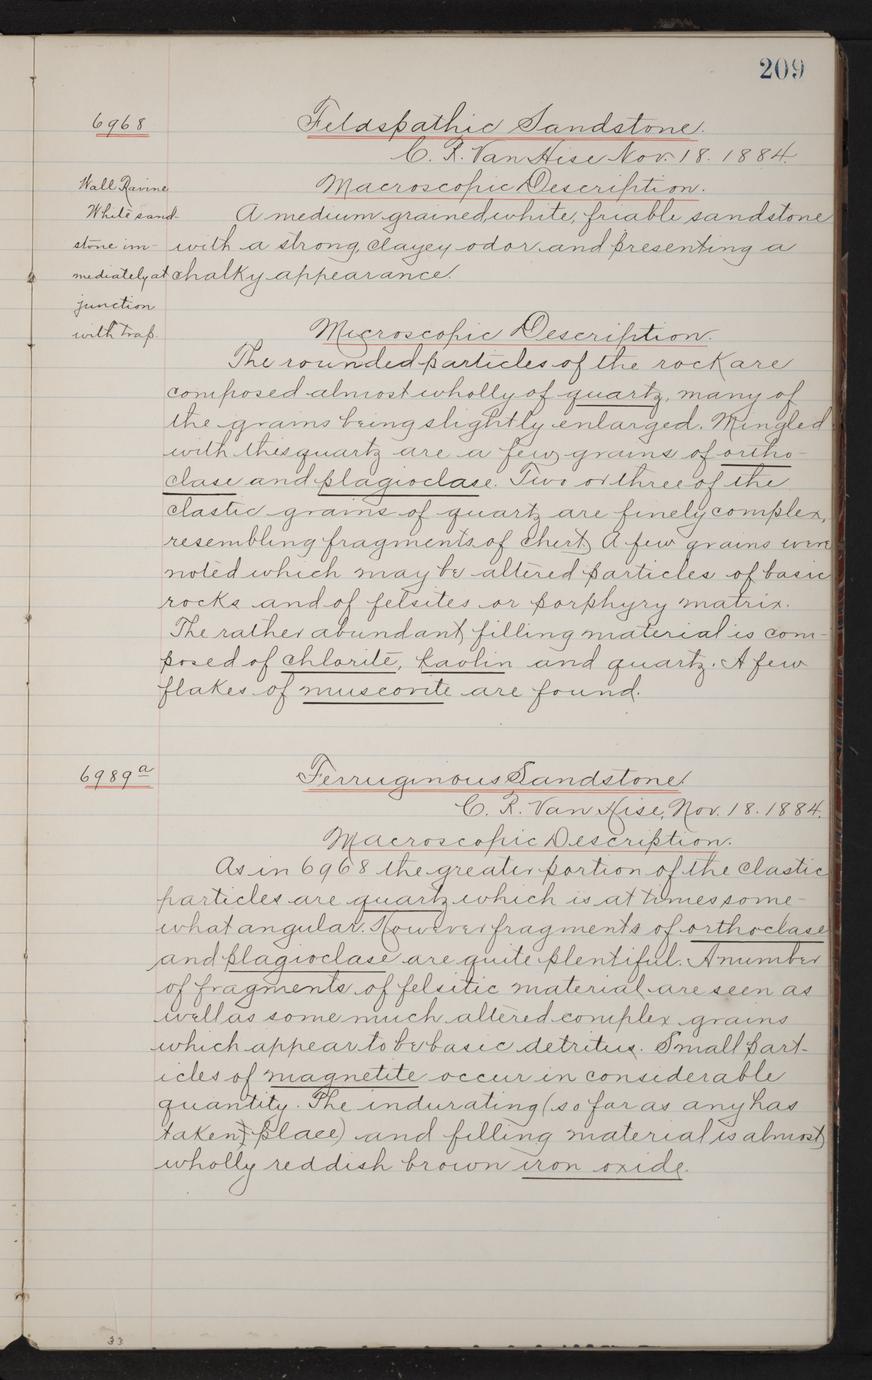 209
6968
Feldspathic Sandstone.
C. R. Van Hise Nov. 18. 1884.
Wall Ravine
White sand-
stone im-
mediately at
junction
with trap.
Macroscopic Description.
A medium grained, white, friable sandstone
with a strong, clayey odor and presenting a
chalky appearance.
Microscopic Description.
The rounded particles of the rock are
composed almost wholly of quartz, many of
the grains being slightly enlarged. Mingled
with this quartz are a few grains of ortho-
clase and plagioclase. Two or three of the
clastic grains of quartz are finely complex,
resembling fragments of chert. A few grains were
noted which may be altered particles of basic
rocks and of felsites or porphyry matrix.
The rather abundant filling material is com-
posed of chlorite, kaolin and quartz. A few
flakes of muscovite are found.
6989a
Ferruginous Sandstone.
C. R. Van Hise, Nov. 18. 1884.
Macroscopic Description.
As in 6968 the greater portion of the clastic
particles are quartz which is at times some-
what angular. However fragments of orthoclase
and plagioclase are quite plentiful. A number
of fragments of felsitic material are seen as
well as some much altered complex grains
which appear to be basic detritus. Small part-
icles of magnetite occur in considerable
quantity. The indurating (so far as any has
taken place) and filling material is almost
wholly reddish brown iron oxide.
33